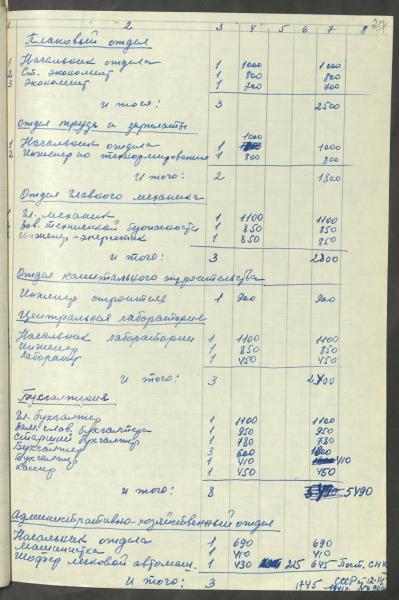 1 2 3 4 5 6 7 8
27
Плановый отдел
1 Начальник отдела 1 1000 1000
2 Ст. экономист 1 800 800
3 Экономист 1 700 700
Итого: 3 2500
Отдел труда и зарплаты
1000
1 Начальник отдела 1 1000
2 Инженер по технормированию 1 800 800
Итого: 2 1800
Отдел главного механика
Гл. механик 1 1100 1100
Зав. технической безопасности 1 850 850
Инженер-энергетик 1 850 850
Итого: 3 2800
Отдел капитального строительства
Инженер строитель 1 900 900
Центральная лаборатория
Начальник лаборатории 1 1100 1100
Инженер 1 850 850
Лаборант 1 450 450
Итого: 3 2400
Бухгалтерия
Гл. бухгалтер 1 1100 1100
Зам. глав. бухгалтера 1 950 950
Старший бухгалтер 1 780 780
Бухгалтер 3 600 1800
Бухгалтер 1 410 410
Кассир 1 450 450
Итого: 8 5490
Административно-хозяйственный отдел
Начальник отдела 1 690 690
Машинистка 1 410 410
Шофер легковой автомаш. 1 430 215 645 Пост. СНК
Итого: 3 1745 СССР